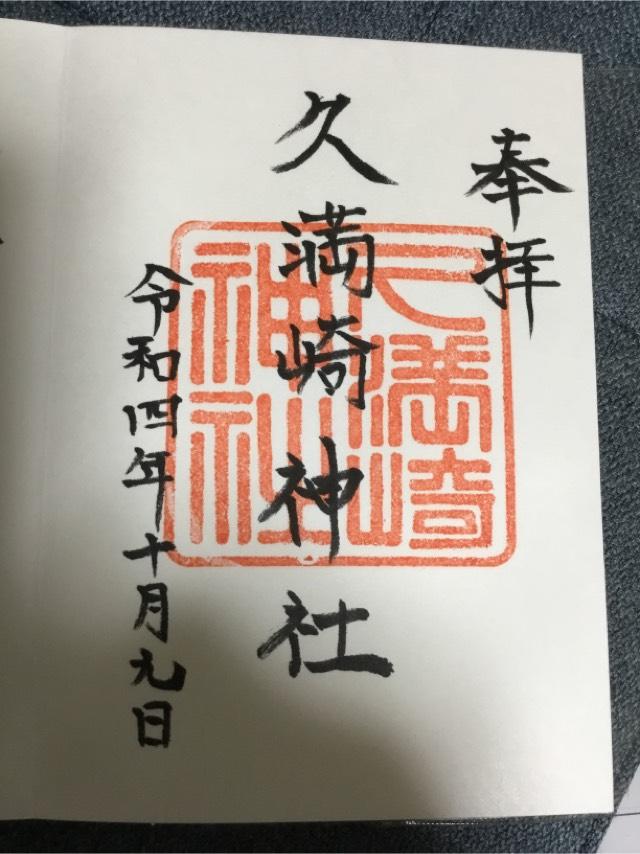 奉拝
久満崎神社
久満崎神社
令和四年十月九日